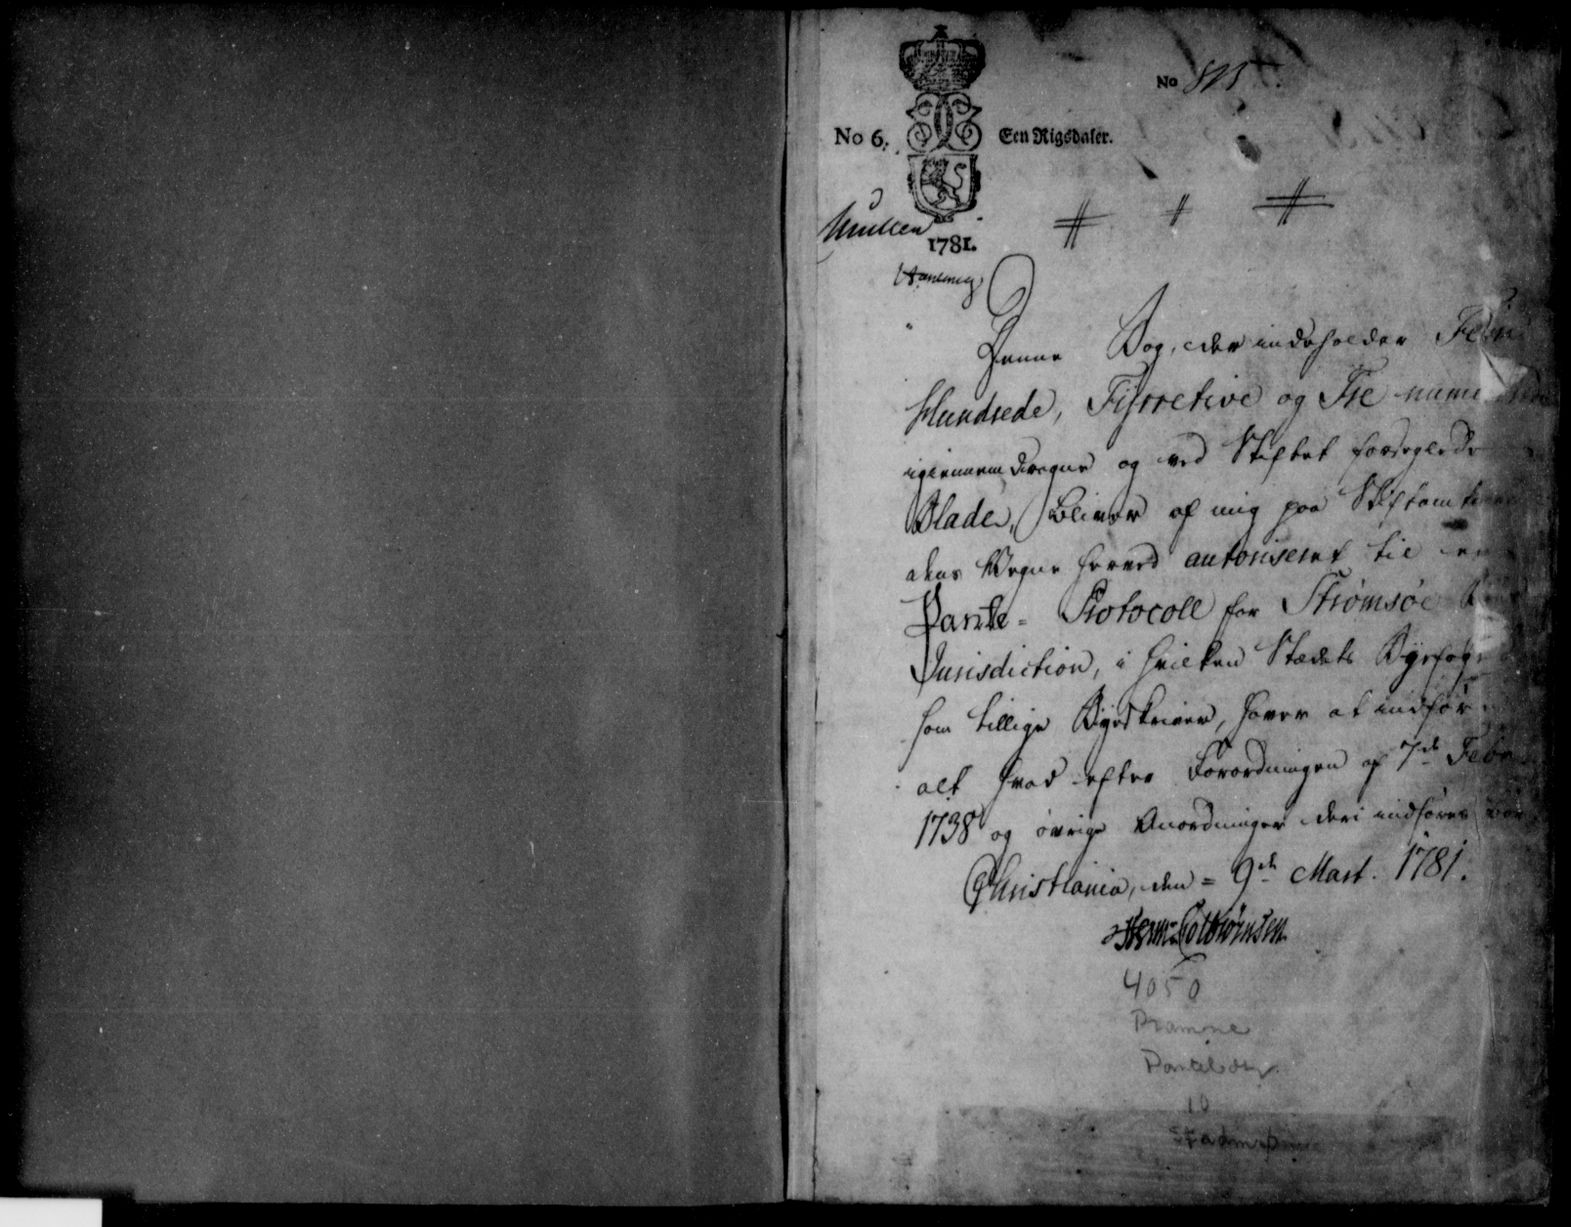 No 825.
No 6. Een Rigsdaler.
1781.
Denne Bog, der indeholder Fem
Hundrede, Fiirretive og Tre nume
igiennemdragne og ved Stiftet forseglede
Blade, bliver af mig paa Stiftamt
dens Vegne herved autoriseret til en
Pante-Protocoll for Strømsøe
Jurisdiction, i hvilken Stædets Byefoget
som tillige Byeskriver, haver at indføre
alt hvad efter Forordningen af 7de Febr
1738 og øvrige Anordninger deri indføres bør
Christiania, den 9de Mart. 1781.
Herm: Colbiørnsen
4050
10